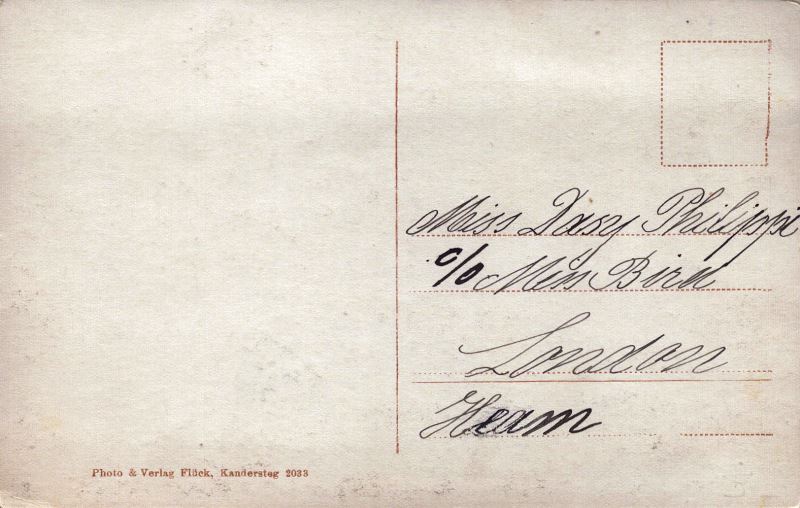 Miss Dasy Philippi
c/o Miss Birn
London
Heam
Photo & Verlag Flück, Kandersteg 2033